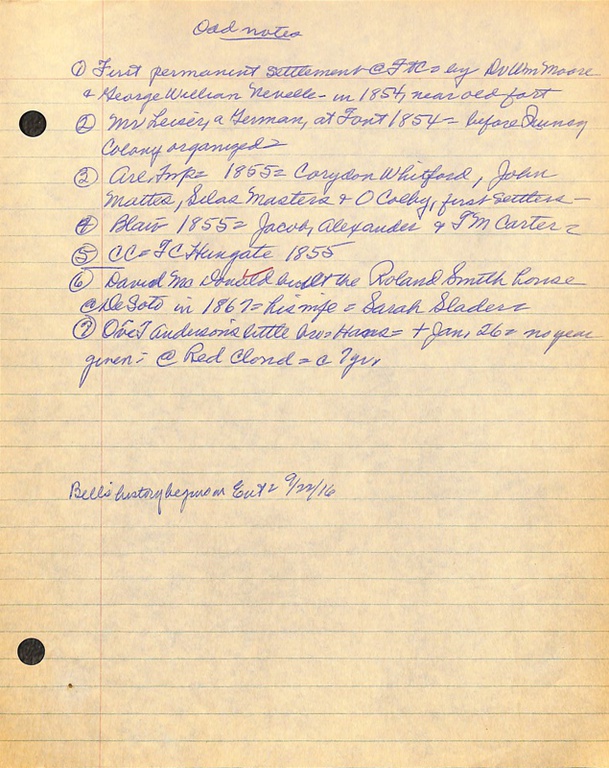 Odd notes
① First permanent settlement @ Ft C = by Dr Wm Moore
& George William Nevelle - in 1854, near old fort
② Mr Leiser, a German, at Font 1854 = before Quincy
Colony organized =
③ Arl. Twp = 1855 = Corydon Whitford, John
Mattes, Silas Masters & O Colby, first settlers -
④ Blair 1855 = Jacob, Alexander & T M Carter =
⑤ CC = T C Hungate 1855
⑥ David Mc Donald built the Roland Smith house
@ DeSoto in 1867 = his wife = Sarah Slader =
⑦ Anderson's little bro = Hans = + Jan, 26 = no year
given = @ Red Cloud = c 7 yr,
Bell's history begins in Ent 9/22/16